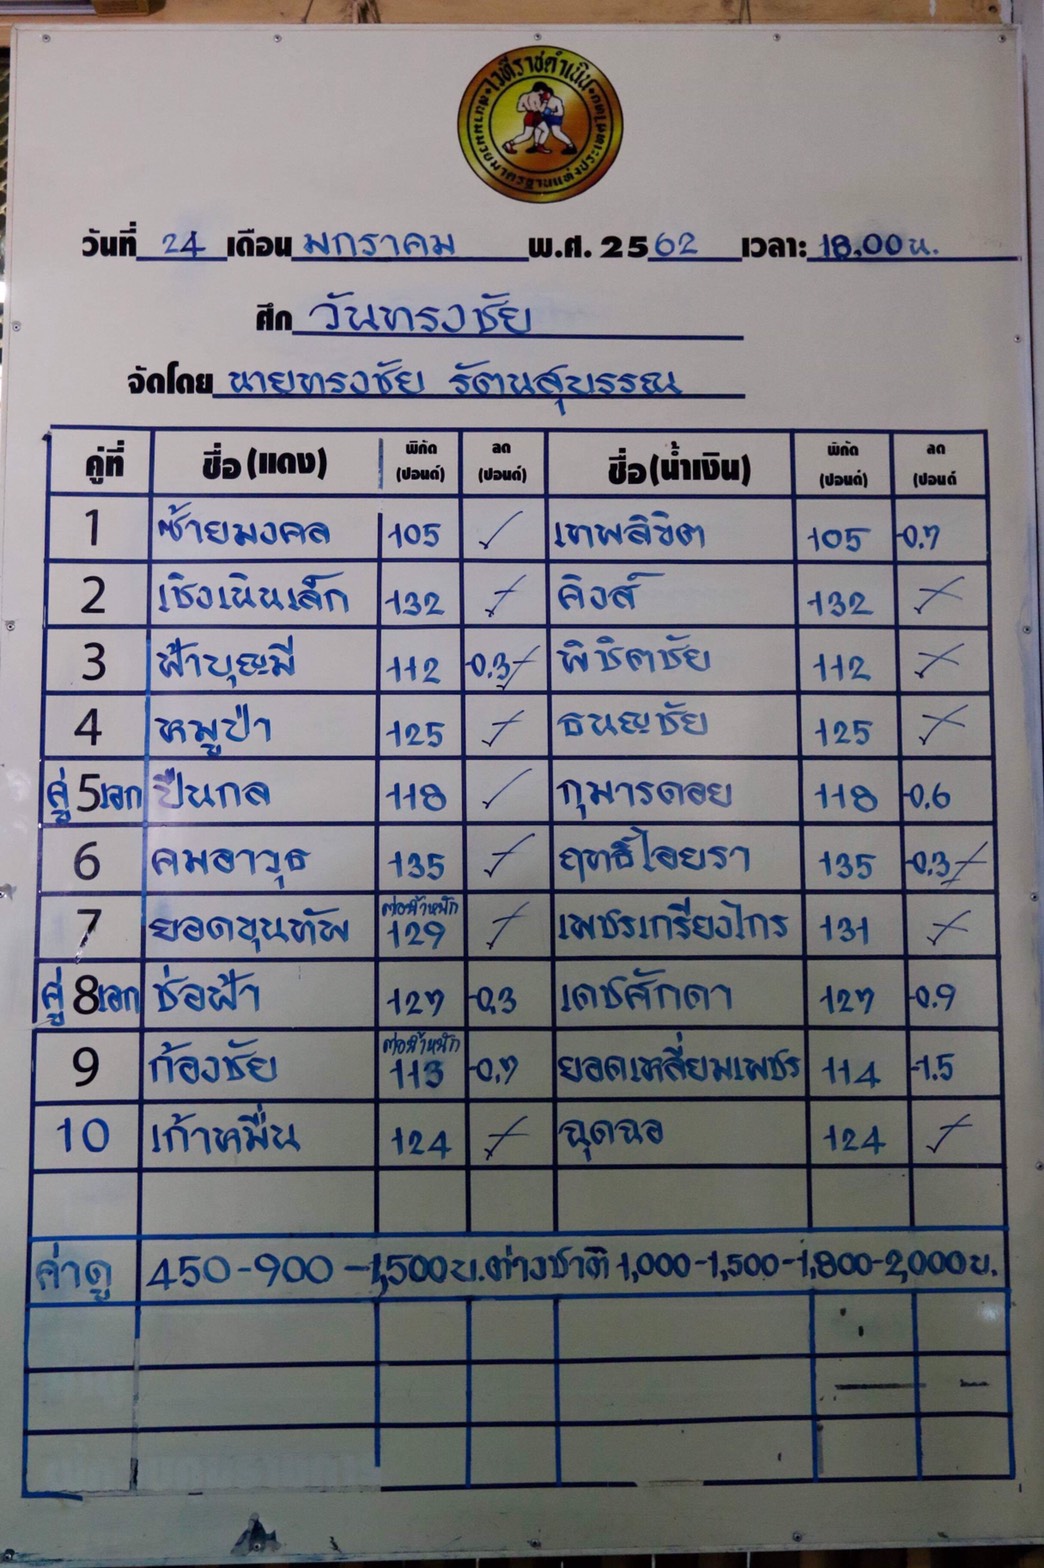 เวทีราชดำเนิน
วันที่ 24 เดือน มกราคม พ.ศ. 2562 เวลา: 18.00 น.
ศึก วันทรงชัย
จัดโดย นายทรงชัย รัตนสุบรรณ
คู่ที่ ชื่อ (แดง) พิกัด (ปอนด์) ลด (ปอนด์) ชื่อ (น้ำเงิน) พิกัด (ปอนด์) ลด (ปอนด์
1 ซ้ายมงคล 105 ✓ เทพลิขิต 105 -0.7
2 เชิงเนินเล็ก 132 ✓ คิงส์ 132 ✓
3 ฟ้าบุญมี 112 -0.3 ✓ พิชิตชัย 112 ✓
4 หมูป่า 125 ✓ ธนญชัย 125 ✓
คู่ 5 เอก ปืนกล 118 ✓ กุมารดอย 118 -0.6
6 คมอาวุธ 135 ✓ ฤทธิ์ไอยรา 135 -0.3 ✓
7 ยอดขุนทัพ ต่อน้ำหนัก 129 ✓ เพชรเกรียงไกร 131 ✓
คู่ 8 เอก ช่อฟ้า 127 -0.3 เดชศักดา 127 -0.9
9 ก้องชัย ต่อน้ำหนัก 113 -0.7 ยอดเหลี่ยมเพชร 114 -1.5
10 เก้าหมื่น 124 ✓ ฉุดฉอ 124 ✓
ค่าดู 450-900-1,500 บ. ต่างชาติ 1,000-1,500-1,800-2,000 บ.